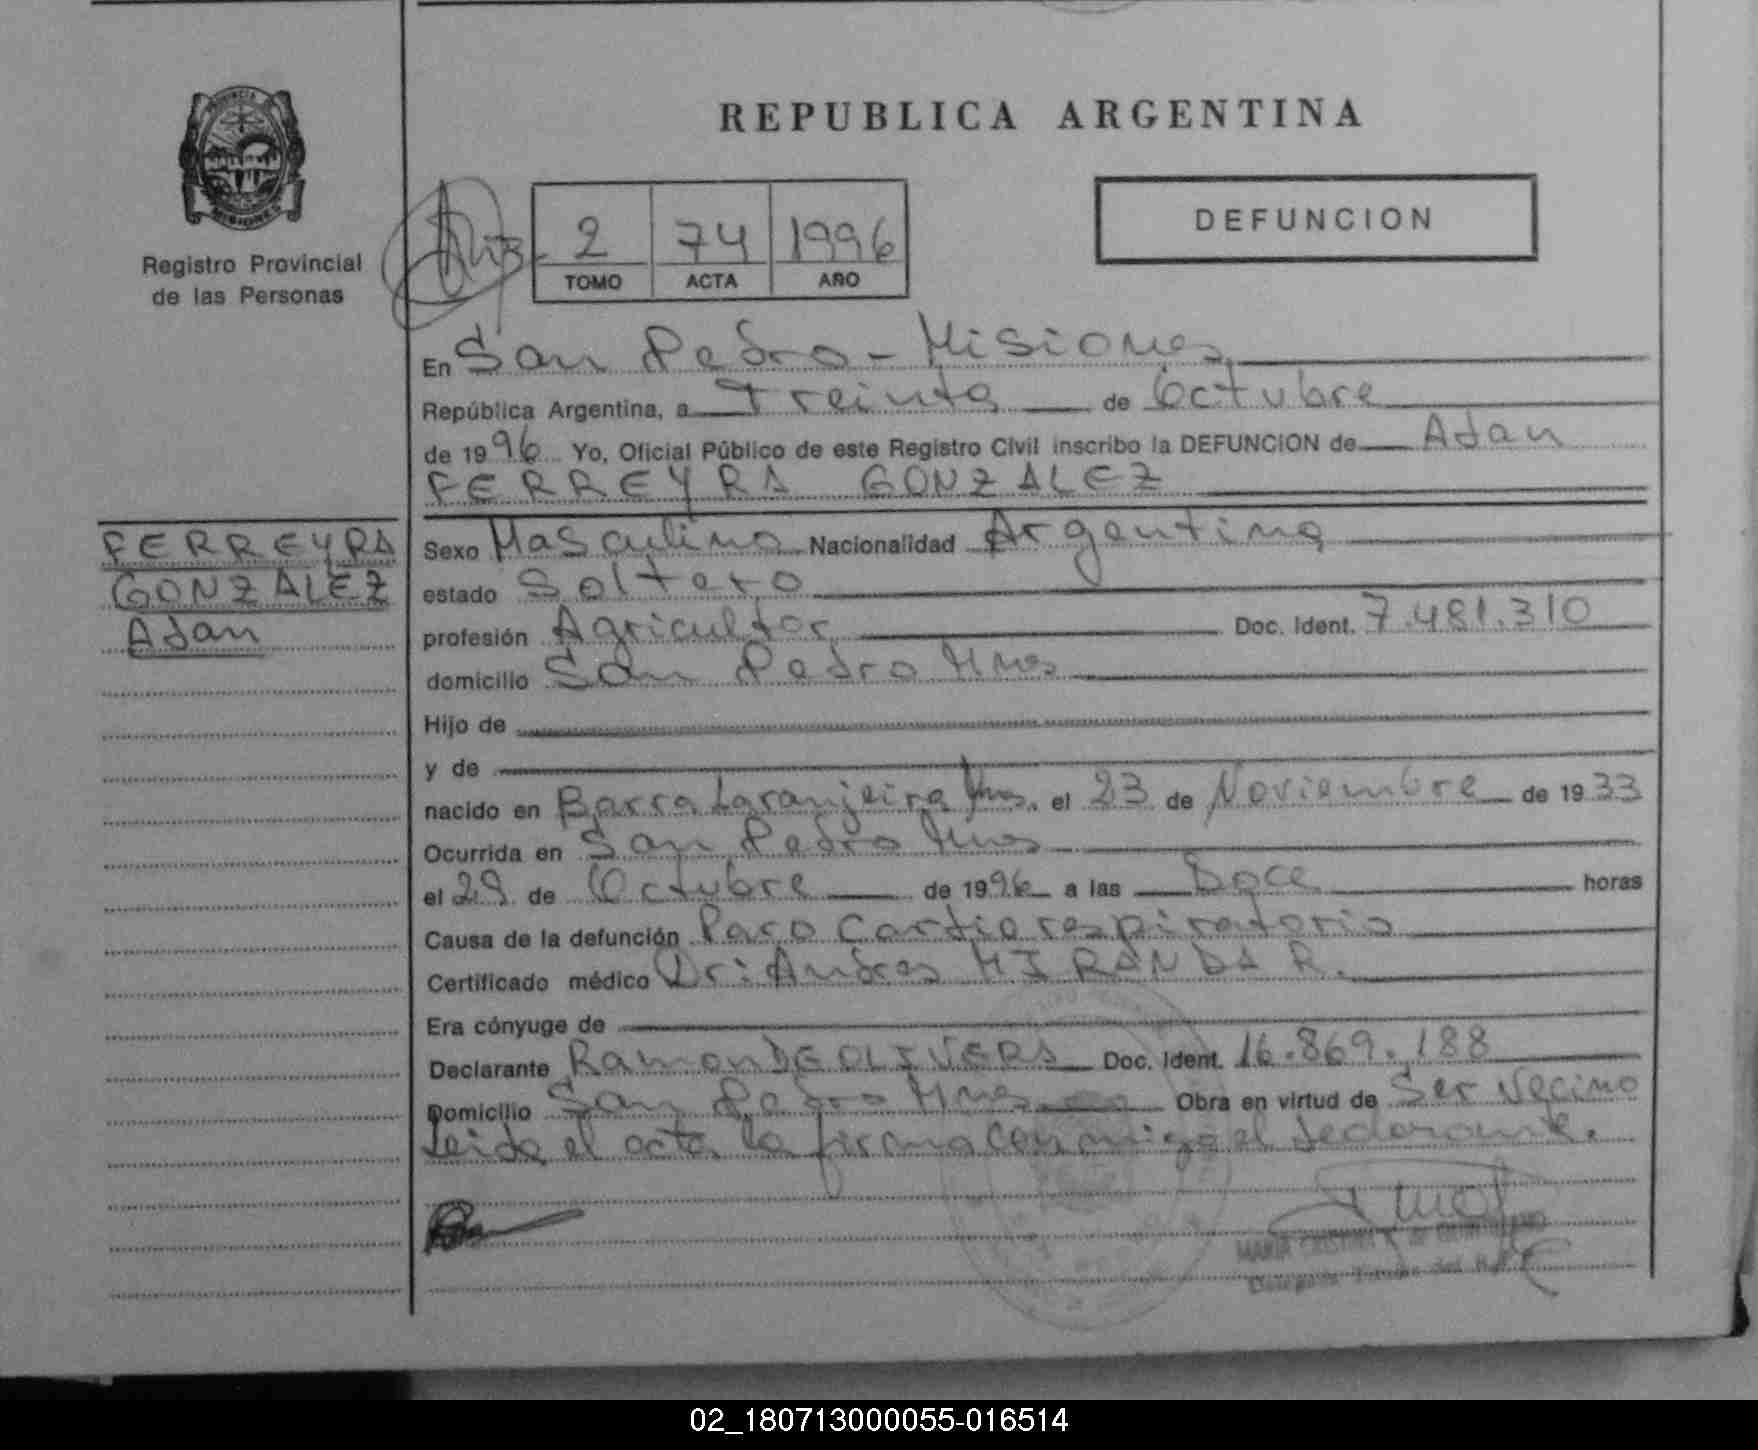 PROVINCIA DE
MISIONES
Registro Provincial
de las Personas
REPUBLICA ARGENTINA
2 74 1996
TOMO ACTA AÑO
DEFUNCION
En San Pedro - Misiones
República Argentina, a Treinta de Octubre
de 1996 Yo, Oficial Público de este Registro Civil inscribo la DEFUNCION de Adan
FERREYRA GONZALEZ
FERREYRA
GONZALEZ
Adan
Sexo Masculino Nacionalidad Argentina
estado Soltero
profesión Agricultor Doc. Ident. 7.481.310
domicilio San Pedro Mnes
Hijo de
y de
nacido en Barra Laranjeira Mns. el 23 de Noviembre de 1933
Ocurrida en San Pedro Mnes
el 29 de Octubre de 1996 a las Doce horas
Causa de la defunción Paro Cardio respiratorio
Certificado médico Dr: Andres MIRANDA R.
Era cónyuge de
Declarante Ramon DE OLIVERA Doc. Ident. 16.869.188
Domicilio San Pedro Mnes Obra en virtud de Ser Vecino
Leida el acta la firma con migo el declarante.
MARIA
02_180713000055-016514